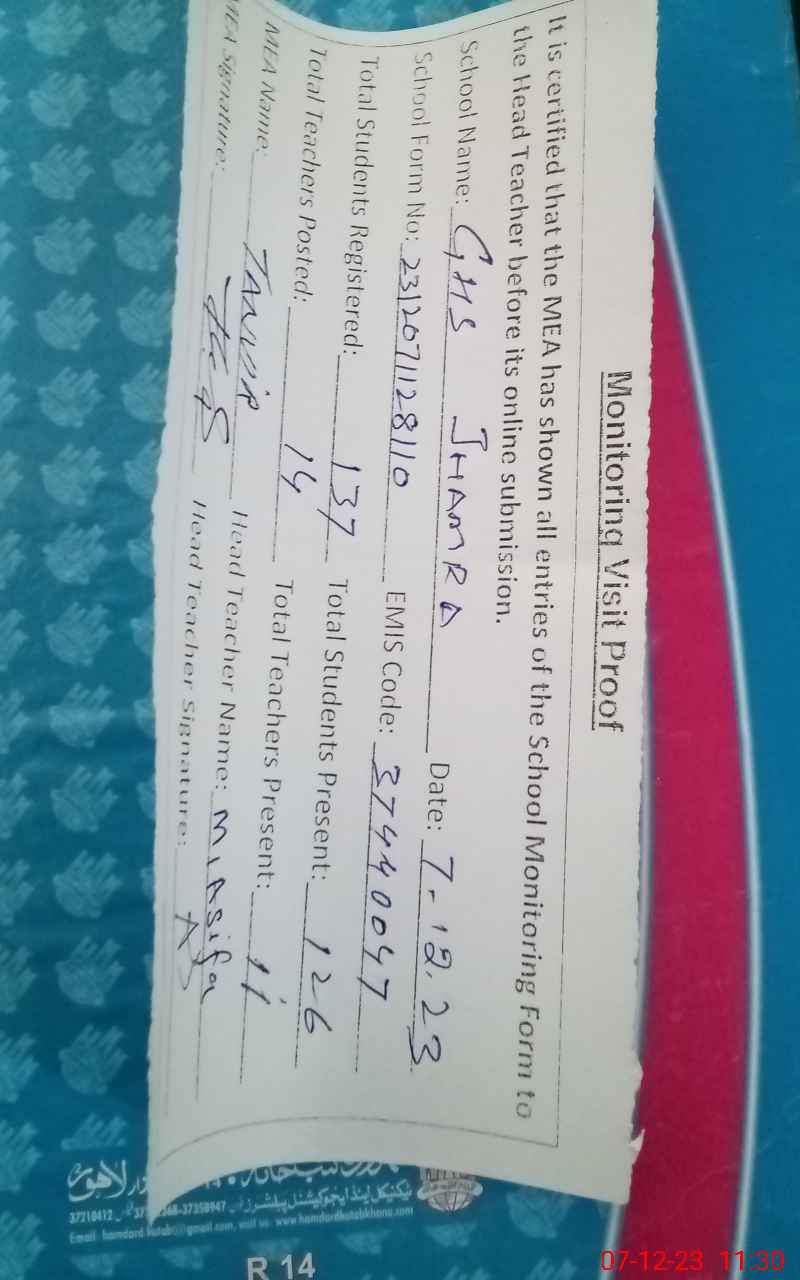 Monitoring Visit Proof
It is certified that the MEA has shown all entries of the School Monitoring Form to
the Head Teacher before its online submission.
School Name: GHS JHAMRA Date: 7-12.23
School Form No: 2312071128110 EMIS Code: 37440047
Total Students Registered: 137 Total Students Present: 126
Total Teachers Posted: 14 Total Teachers Present: 11
MEA Name: TANVIR Head Teacher Name: M,Asif
MEA Signature: Head Teacher Signature:
لاہور
ٹیکنیکل اینڈ ایجوکیشنل پبلشرز
37210412
-37358947
www.hamdardkutabkhana.com
R 14
07-12-23 11:30